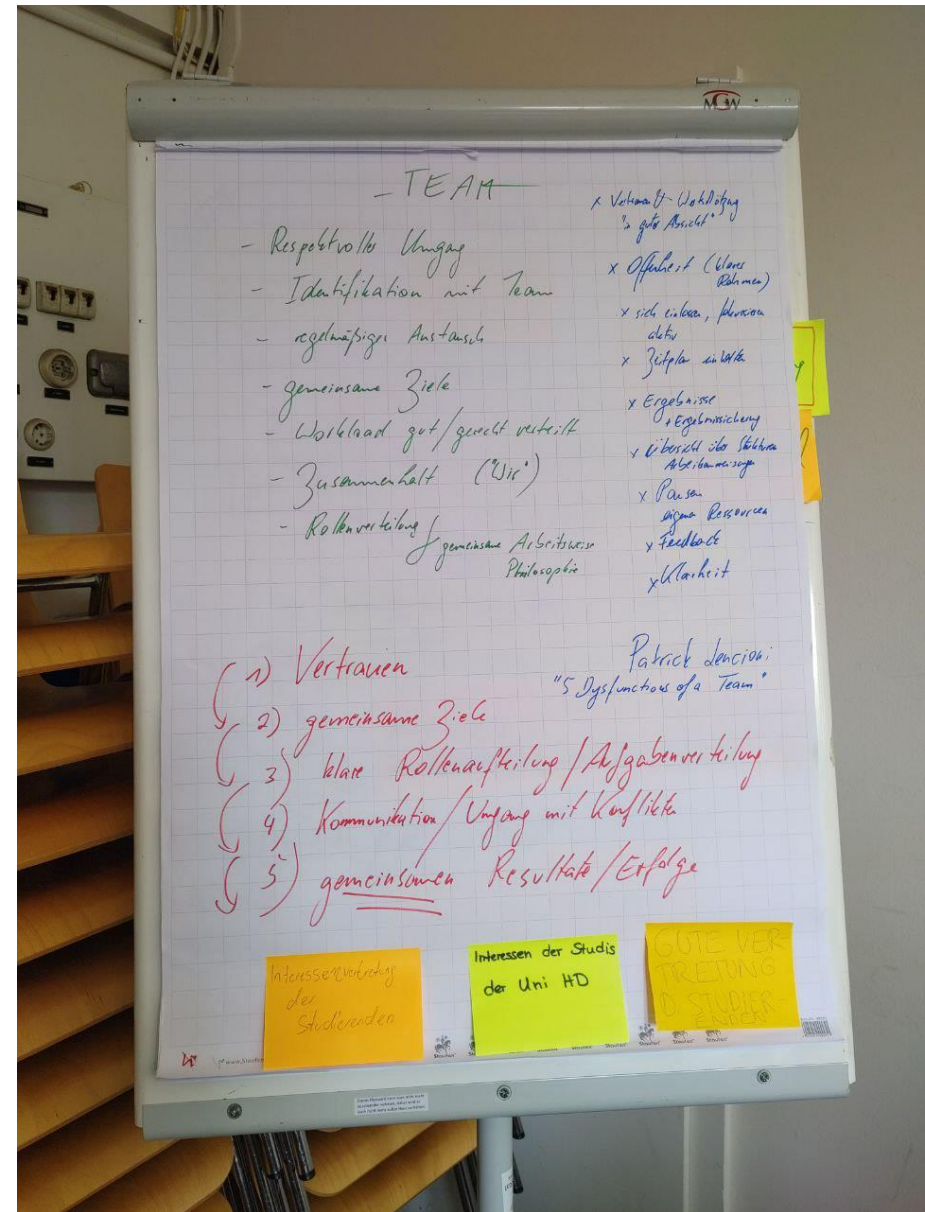 MGW
TEAM
- Respektvoller Umgang
- Identifikation mit Team
- regelmäßiger Austausch
- gemeinsame Ziele
- Workload gut/gerecht verteilt
- Zusammenhalt ("Wir")
- Rollenverteilung
gemeinsame Arbeitsweise
Philosophie
x Vertrauen
"gute Absicht"
x Offenheit (klarer
Rahmen)
x sich einlassen,
aktiv
x Zeitplan einhalten
x Ergebnisse
+ Ergebnissicherung
x Übersicht über Strukturen
Arbeitsanweisungen
x Pausen
eigene Ressourcen
x Feedback
x Klarheit
Patrick Lencioni
"5 Dysfunctions of a Team"
1) Vertrauen
2) gemeinsame Ziele
3) klare Rollenaufteilung/Aufgabenverteilung
4) Kommunikation/Umgang mit Konflikten
5) gemeinsamen Resultate/Erfolge
Interessenvertretung
der
Studierenden
Interessen der Studis
der Uni HD
GUTE VER
TRETUNG
D. STUDIER-
ENDEN